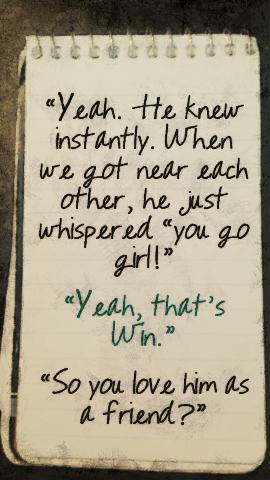 “Yeah. He knew
instantly. When
we got near each
other, he just
whispered “you go
girl!”
“Yeah, that’s
Win.”
“So you love him as
a friend?”